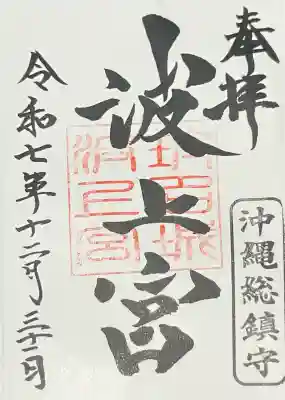 奉拝
沖縄総鎮守
波上宮
令和七年十二月三十一日